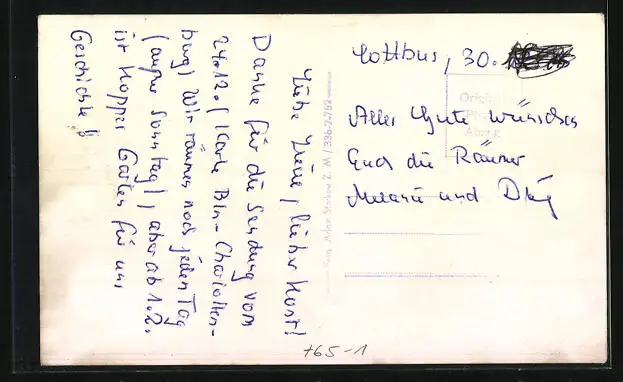 Cottbus, 30.
Alles Gute wünschen
Euch die Räumer
Melanie und
Liebe Irene, lieber Horst!
Danke für die Sendung vom
24.12. (Karte Bln-Charlotten-
burg) Wir räumen noch jeden Tag
(außer Sonntag), aber ab 1.2.
ist Hoppes Garten für uns
Geschichte!!
Original
Photo
Abzug
Z. M/336-2752
+65-1